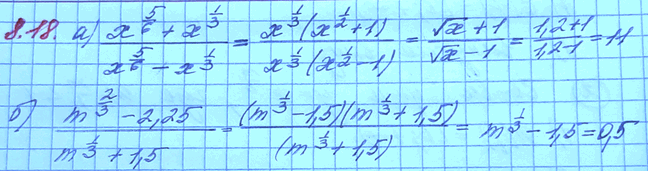 8.18. а) (x^(5/6) + x^(1/3))/(x^(5/6) - x^(1/3)) = (x^(1/3)(x^(1/2) + 1))/(x^(1/3)(x^(1/2) - 1)) = (√x + 1)/(√x - 1) = (1,2+1)/(1,2-1) = 11
б) (m^(2/3) - 2,25)/(m^(1/3) + 1,5) = ((m^(1/3) - 1,5)(m^(1/3) + 1,5))/((m^(1/3) + 1,5)) = m^(1/3) - 1,5 = 0,5